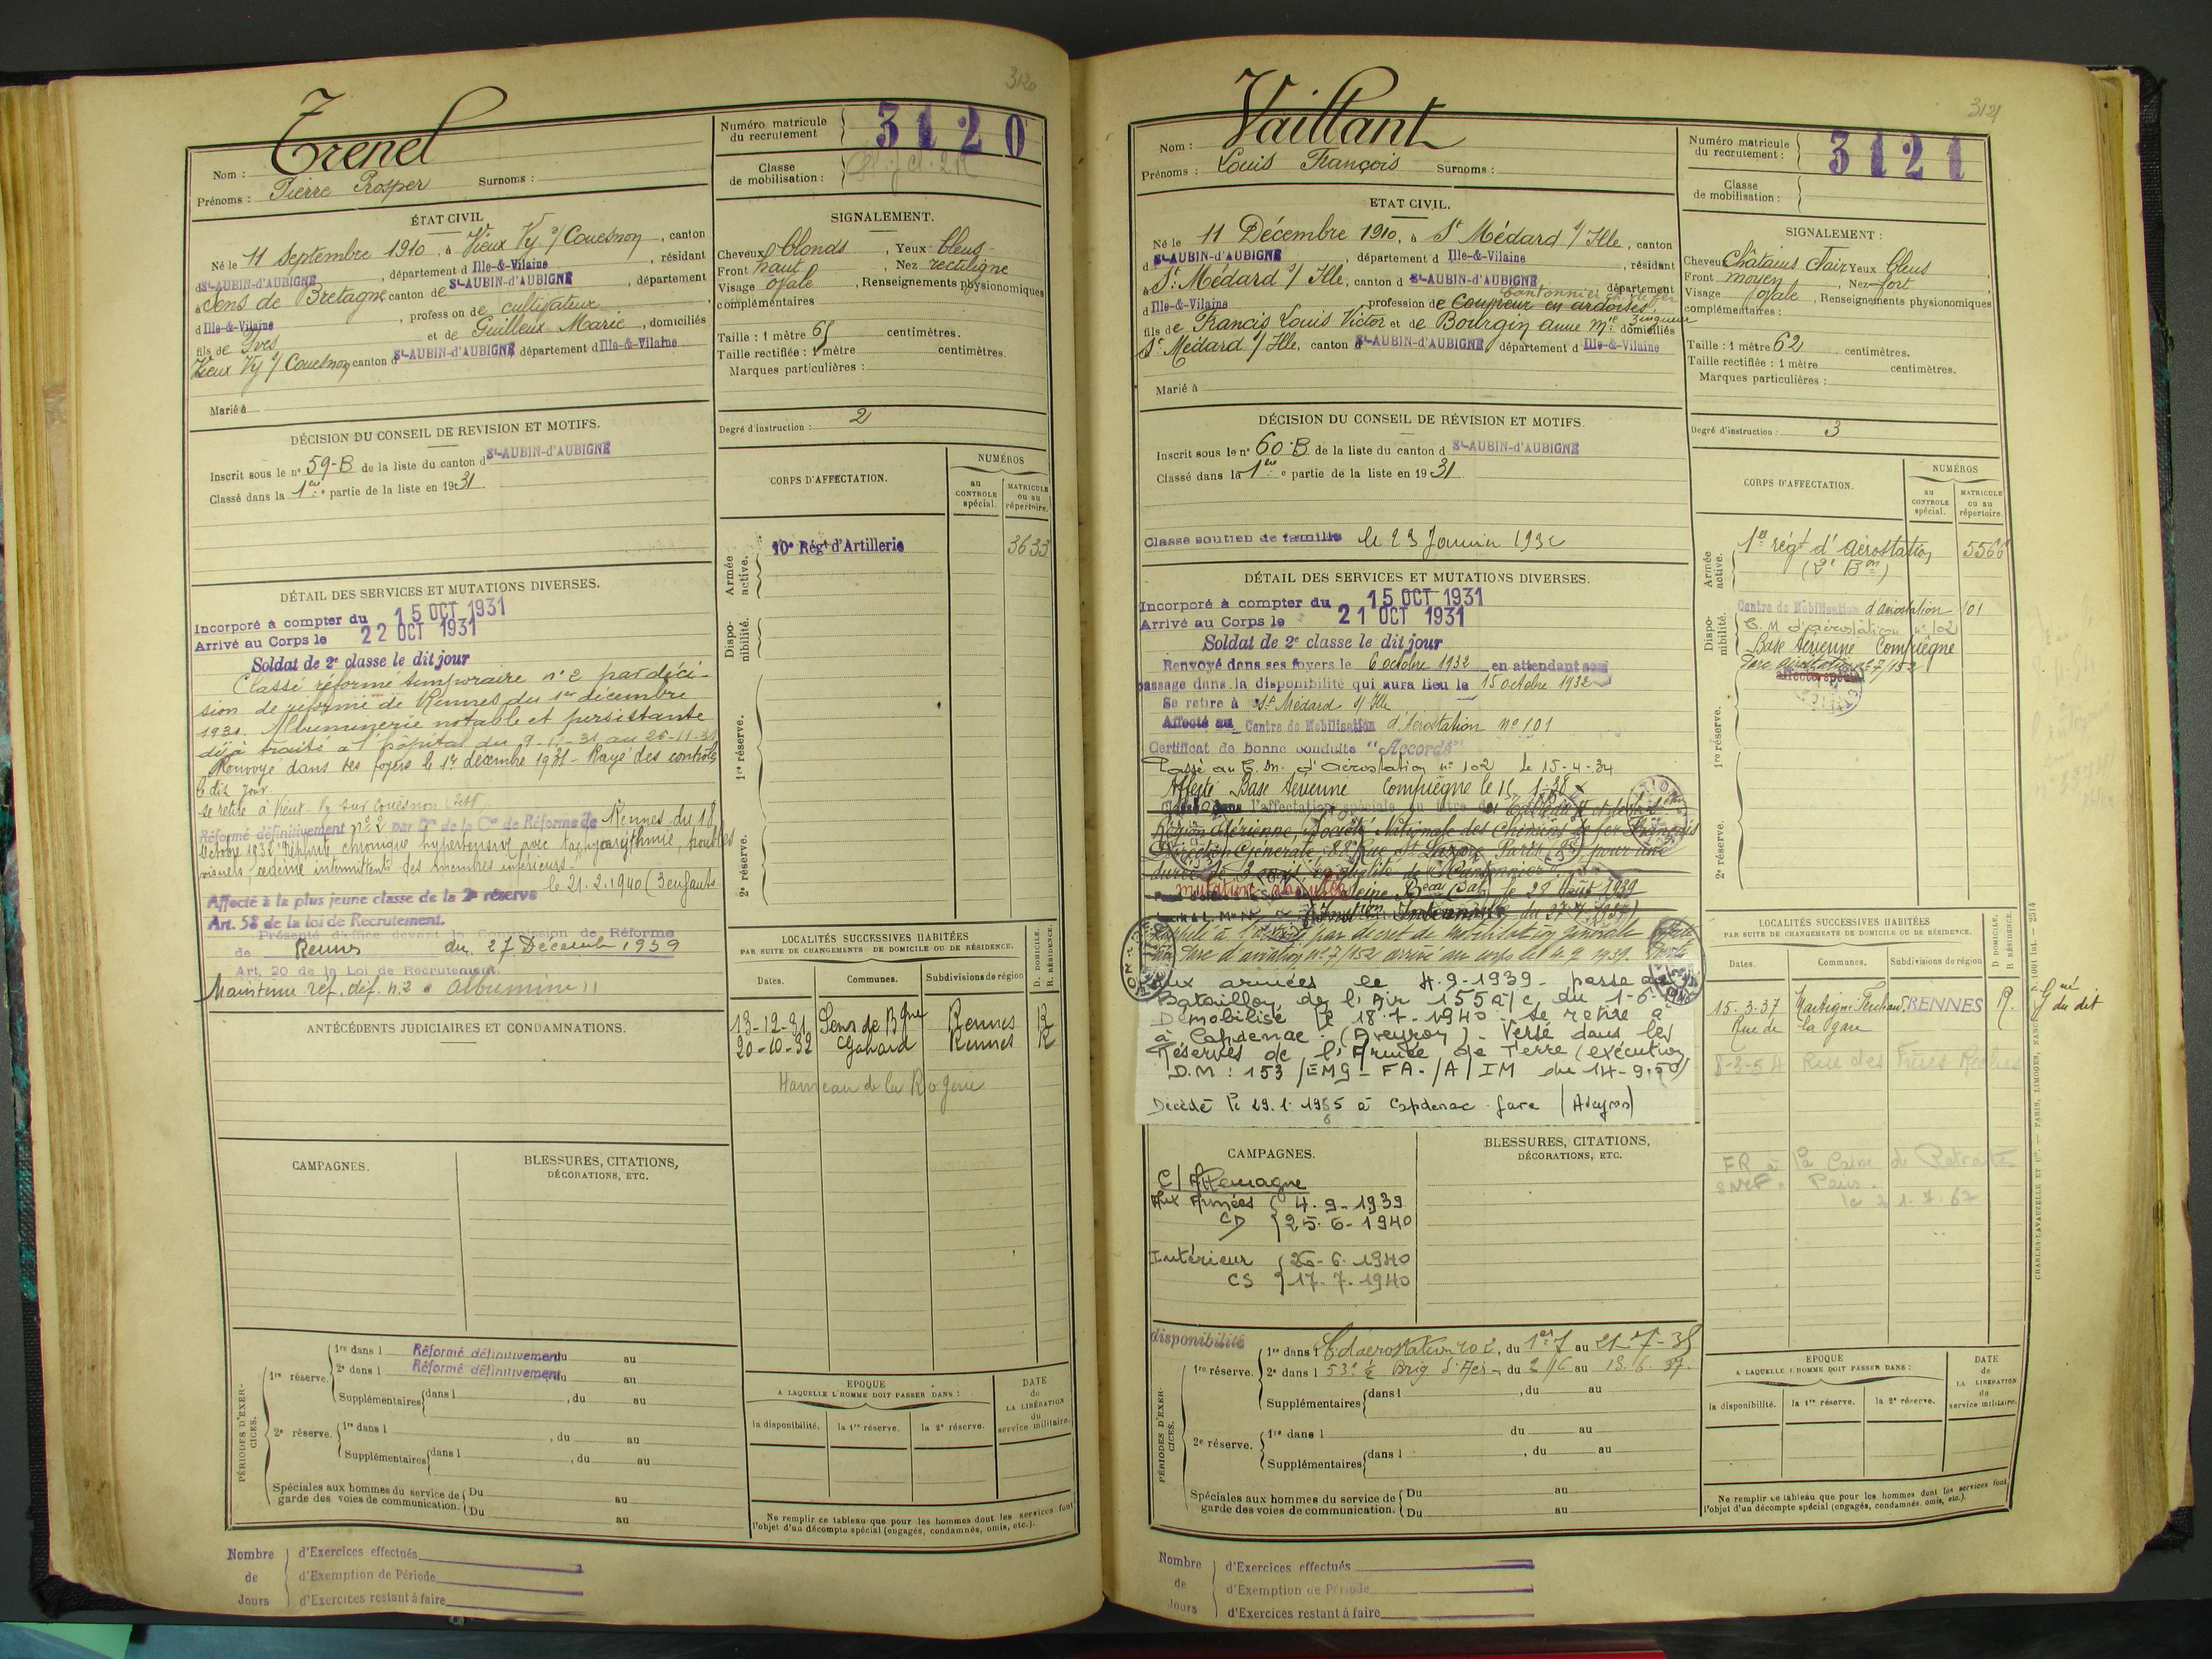 3120
Trenel
Nom :
Prénoms : Pierre Prosper Surnoms :
Numéro matricule du recrutement 3120
Classe de mobilisation :
ÉTAT CIVIL
Né le 11 Septembre 1910, à Vieux Vy s/ Couesnon, canton
d St-AUBIN-d'AUBIGNÉ, département d Ille-&-Vilaine, résidant
à Sens de Bretagne canton de St-AUBIN-d'AUBIGNÉ, département
d Ille-&-Vilaine, profession de cultivateur
fils de Yves et de Guilleux Marie, domiciliés
Vieux Vy s/ Couesnon canton d St-AUBIN-d'AUBIGNÉ département d Ille-&-Vilaine
Marié à
SIGNALEMENT.
Cheveux blonds, Yeux bleus
Front haut, Nez rectiligne
Visage ovale, Renseignements physionomiques
complémentaires
Taille : 1 mètre 65 centimètres.
Taille rectifiée : 1 mètre centimètres.
Marques particulières :
Degré d'instruction : 2
DÉCISION DU CONSEIL DE REVISION ET MOTIFS.
Inscrit sous le n° 59-B de la liste du canton d St-AUBIN-d'AUBIGNÉ
Classé dans la 1ère partie de la liste en 1931
CORPS D'AFFECTATION.
NUMÉROS
au CONTROLE spécial.
MATRICULE ou au répertoire.
Armée active.
10e Régt d'Artillerie 3633
Disponibilité.
1re réserve.
2e réserve.
DÉTAIL DES SERVICES ET MUTATIONS DIVERSES.
Incorporé à compter du 15 OCT 1931
Arrivé au Corps le 22 OCT 1931
Soldat de 2e classe le dit jour
Classé réformé temporaire n° 2 par déci-
sion de réforme de Rennes du 1er décembre
1931. Albuminerie notable et persistante
déjà traité à l'hôpital du 9-11-31 au 26-11-31
Renvoyé dans ses foyers le 1er décembre 1931 - Rayé des contrôles
le dit jour
se retire à Vieux-Vy sur Couësnon
Réformé définitivement n° 2 par de la Con de Réforme de Rennes du 18
Octobre 1932 "Néphrite chronique hypertensive avec tachyarythmie, troubles
visuels, œdème intermittents des membres inférieurs."
le 21.2.1940 (3 enfants
Affecté à la plus jeune classe de la 2e réserve
Art. 58 de la loi de Recrutement.
Présenté d'office devant la Commission de Réforme
de Rennes du 27 Décembre 1939
Art. 20 de la Loi de Recrutement.
Maintenu réf. déf. n.2 "albumine"
ANTÉCÉDENTS JUDICIAIRES ET CONDAMNATIONS.
LOCALITÉS SUCCESSIVES HABITÉES
PAR SUITE DE CHANGEMENTS DE DOMICILE OU DE RÉSIDENCE.
D. DOMICILE.
R. RÉSIDENCE.
Dates. Communes. Subdivisions de région
13-12-31 Sens de Bgne Rennes R
20-10-32 Gahard Rennes R
Hameau de la Rogerie
CAMPAGNES.
BLESSURES, CITATIONS,
DÉCORATIONS, ETC.
PÉRIODES D'EXERCICES.
1re réserve.
1re dans l Réformé définitivement du au
2e dans l Réformé définitivement du au
Supplémentaires dans l , du au
2e réserve.
1re dans l , du au
Supplémentaires dans l , du au
Spéciales aux hommes du service de garde des voies de communication.
Du au
Du au
EPOQUE
A LAQUELLE L'HOMME DOIT PASSER DANS :
la disponibilité. la 1re réserve. la 2e réserve.
DATE de LA LIBÉRATION du service militaire.
Ne remplir ce tableau que pour les hommes dont les services font
l'objet d'un décompte spécial (engagés, condamnés, omis, etc.).
Nombre de Jours
d'Exercices effectués
d'Exemption de Période
d'Exercices restant à faire
3121
Vaillant
Nom :
Prénoms : Louis François Surnoms :
Numéro matricule du recrutement : 3121
Classe de mobilisation :
ETAT CIVIL.
Né le 11 Décembre 1910, à St Médard s/ Ille, canton
d St-AUBIN-d'AUBIGNÉ, département d Ille-&-Vilaine, résidant
à St Médard s/ Ille, canton d St-AUBIN-d'AUBIGNÉ département
Cantonnier ch. de fer
d Ille-&-Vilaine profession de Coupeur en ardoises.
fils de Francis Louis Victor et de Bourgin Anne Mie domiciliés
St Médard s/ Ille, canton d St-AUBIN-d'AUBIGNÉ département d Ille-&-Vilaine
Marié à
SIGNALEMENT :
Cheveux Châtains Clair Yeux bleus
Front moyen, Nez fort
Visage ovale, Renseignements physionomiques
complémentaires :
Taille : 1 mètre 62 centimètres.
Taille rectifiée : 1 mètre centimètres.
Marques particulières :
Degré d'instruction : 3
DÉCISION DU CONSEIL DE RÉVISION ET MOTIFS.
Inscrit sous le n° 60-B de la liste du canton d St-AUBIN-d'AUBIGNÉ
Classé dans la 1ère partie de la liste en 1931
Classé soutien de famille le 23 Janvier 193
CORPS D'AFFECTATION.
NUMÉROS
au CONTROLE spécial.
MATRICULE ou au répertoire.
Armée active.
1er régt d'Aérostation 5566
(2e Bon)
Disponibilité.
Centre de Mobilisation d'aérostation 101
C. M d'aérostation n° 102
Base Aérienne Compiègne
Parc aérostation n° 7/152
affecté spécial
1re réserve.
2e réserve.
DÉTAIL DES SERVICES ET MUTATIONS DIVERSES.
Incorporé à compter du 15 OCT 1931
Arrivé au Corps le 21 OCT 1931
Soldat de 2e classe le dit jour
Renvoyé dans ses foyers le 6 octobre 1932 en attendant son
passage dans la disponibilité qui aura lieu le 15 octobre 1932
Se retire à St Médard s/ Ille
Affecté au Centre de Mobilisation d'Aérostation n° 101
Certificat de bonne conduite "Accordé"
Passé au C. M. d'Aérostation n° 102 le 15-4-34
Affecté Base Aérienne Compiègne le 15-1-38
Classé dans l'affectation spéciale au titre de
Région Aérienne, Société Nationale des Chemins de fer Français
Direction Générale, 88 Rue St Lazare Paris pour une
mutation annulée
le 28 Août 1939
Rappelé à l'activité par décret de mobilisation générale
Parc d'aviation n° 7/152 arrivé au corps le 4.9.1939.
Aux armées le 4-9-1939 - passé au
Bataillon de l'Air 155 à/c du 1-6-1940
Démobilisé le 18-7-1940 - se retire à
à Capdenac (Aveyron) - Versé dans les
Réserves de l'Armée de Terre (exécution
D.M : 153/EMG-FA-/A/IM du 14-9-50)
Décédé le 29.1.1955 à Capdenac-gare (Aveyron)
6
LOCALITÉS SUCCESSIVES HABITÉES
PAR SUITE DE CHANGEMENTS DE DOMICILE OU DE RÉSIDENCE.
D DOMICILE.
R RÉSIDENCE.
Dates. Communes. Subdivisions de région
15-3-37 Martigné-Ferchaud RENNES R. Gné du dit
Rue de la gare
8-3-54 Rue des Frères
FR à la Caisse de Retraites
SNCF. Paris.
le 21.7.67
CAMPAGNES.
C/ Allemagne
Aux Armées 4-9-1939
CD 25-6-1940
Intérieur 26-6-1940
CS 17-7-1940
BLESSURES, CITATIONS,
DÉCORATIONS, ETC.
PÉRIODES D'EXERCICES.
disponibilité
1re réserve.
1re dans l C d'aerostation 102, du 1er 7 au 21-7-35
2e dans l 53e ½ Brig. d'Aér., du 2/6 au 13.6.37
Supplémentaires dans l , du au
2e réserve.
1re dans l du au
Supplémentaires dans l , du au
Spéciales aux hommes du service de garde des voies de communication.
Du au
Du au
EPOQUE
A LAQUELLE L'HOMME DOIT PASSER DANS :
la disponibilité. la 1re réserve. la 2e réserve.
DATE de LA LIBÉRATION du service militaire.
Ne remplir ce tableau que pour les hommes dont les services font
l'objet d'un décompte spécial (engagés, condamnés, omis, etc.).
Nombre de Jours
d'Exercices effectués
d'Exemption de Période
d'Exercices restant à faire
CHARLES-LAVAUZELLE ET Cie. — PARIS, LIMOGES, NANCY